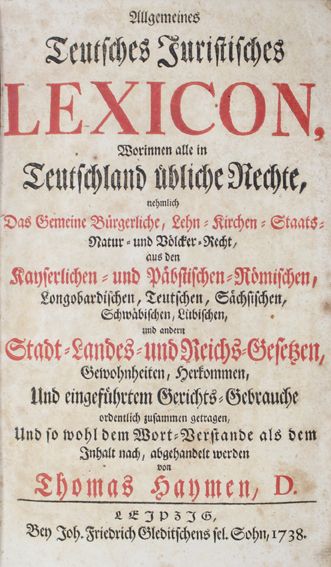 Allgemeines
Teutsches Juristisches
LEXICON,
Worinnen alle in
Teutschland übliche Rechte,
nehmlich
Das Gemeine Bürgerliche, Lehn- Kirchen- Staats-
Natur- und Völcker-Recht,
aus den
Kayserlichen- und Päbstischen-Römischen,
Longobardischen, Teutschen, Sächsischen,
Schwäbischen, Lübischen,
und andern
Stadt-Landes-und Reichs-Gesetzen,
Gewohnheiten, Herkommen,
Und eingeführtem Gerichts-Gebrauche
ordentlich zusammen getragen,
Und so wohl dem Wort-Verstande als dem
Inhalt nach, abgehandelt werden
von
Thomas Haymen, D.
LEIPZIG,
Bey Joh. Friedrich Gleditschens sel. Sohn, 1738.